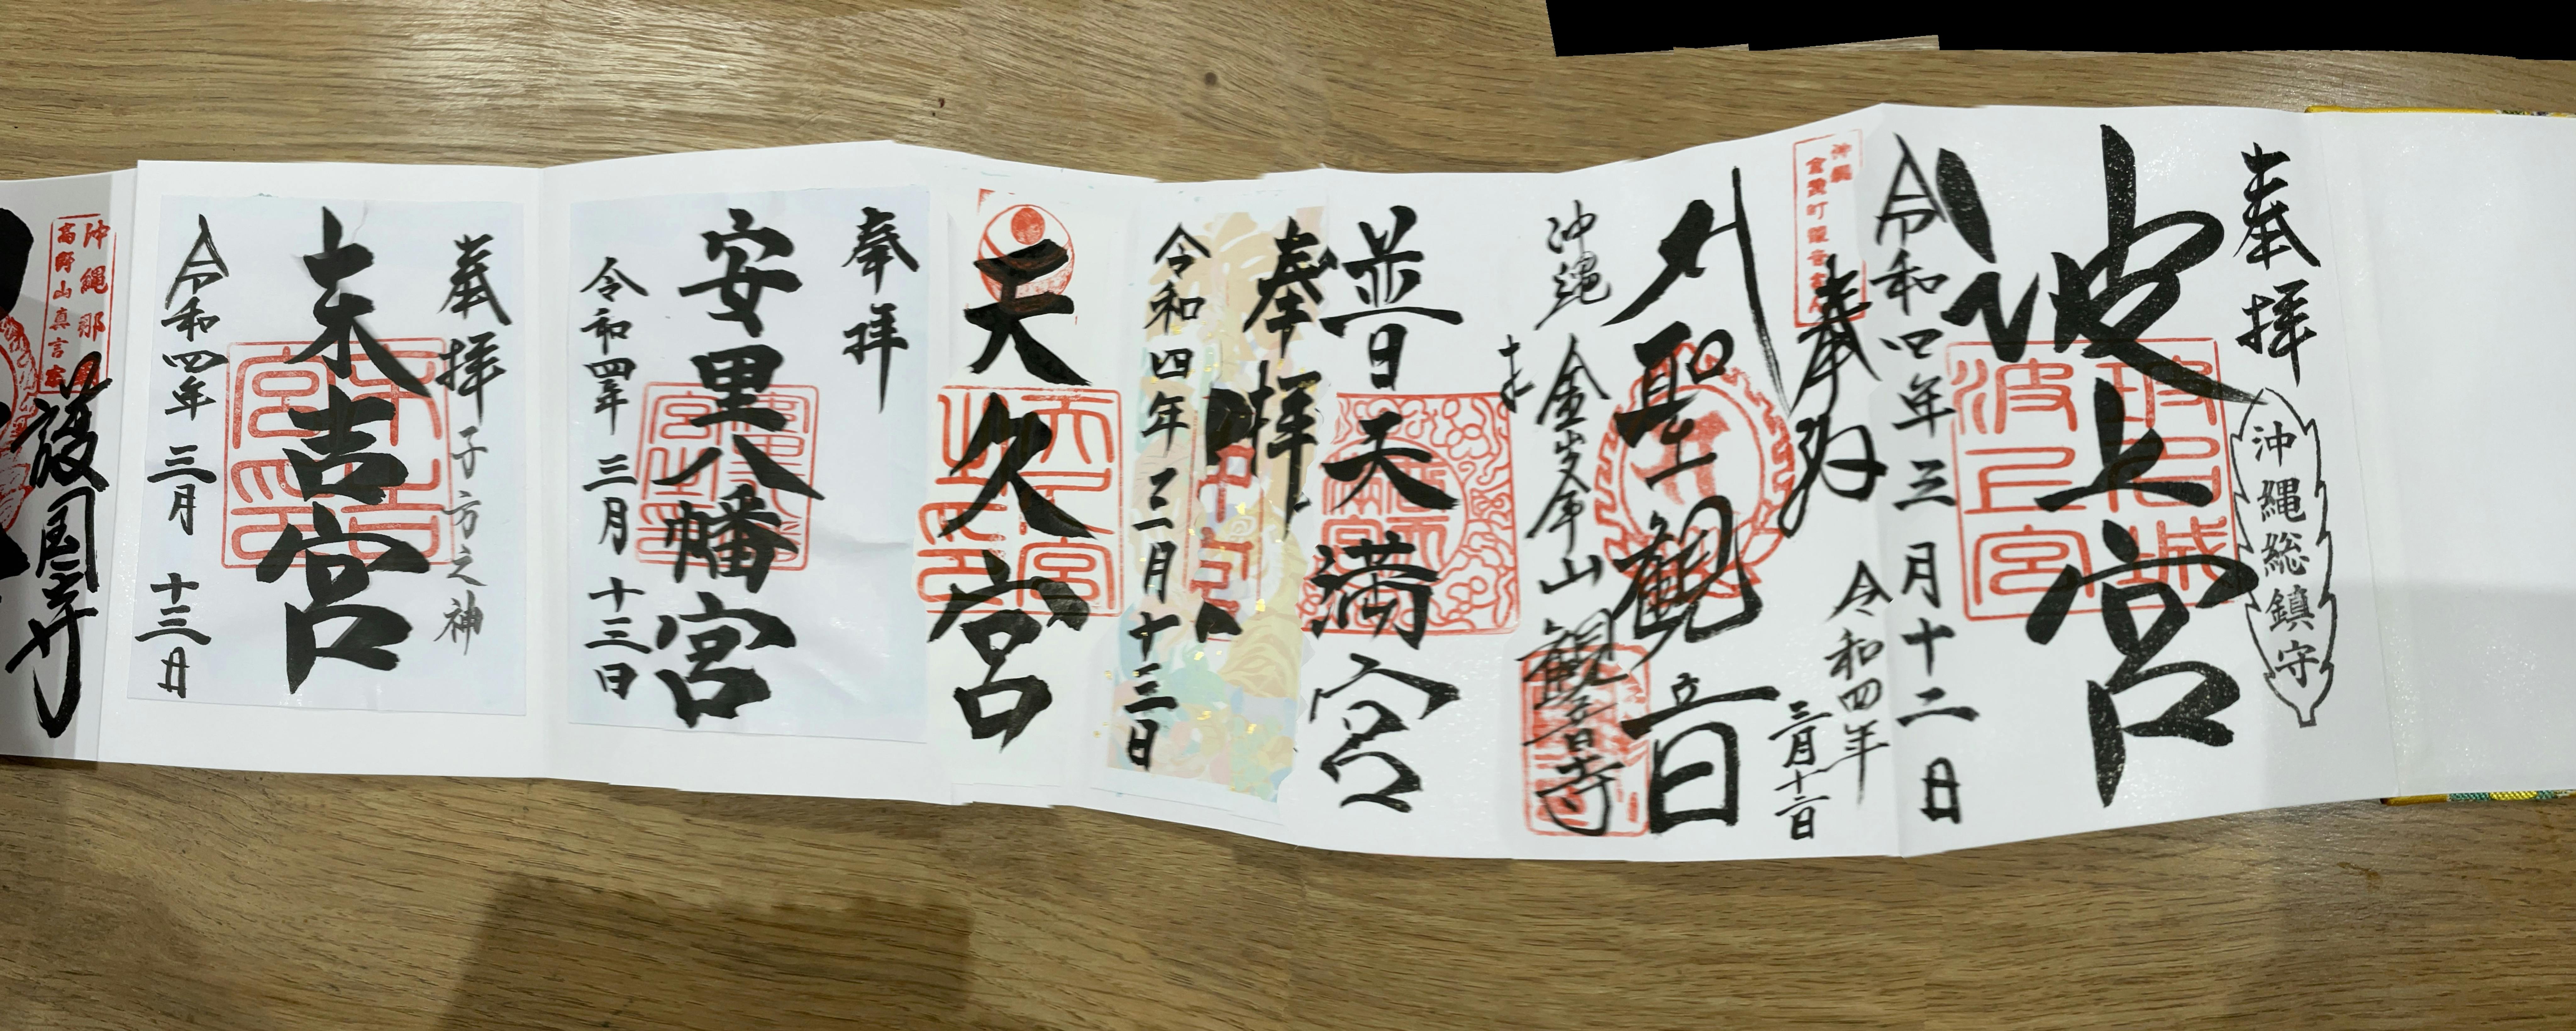 奉拝
沖縄総鎮守
波上宮
波上宮
令和四年三月十二日
奉拝
沖縄
聖観音
令和四年
三月十二日
沖縄
金峯山
観音寺
普天満宮
奉拝
令和四年三月十三日
天久宮
奉拝
安里八幡宮
令和四年
三月
十三日
奉拝
子方之神
末吉宮
令和四年
三月
十三日
沖縄那
高野山真言宗
護国寺